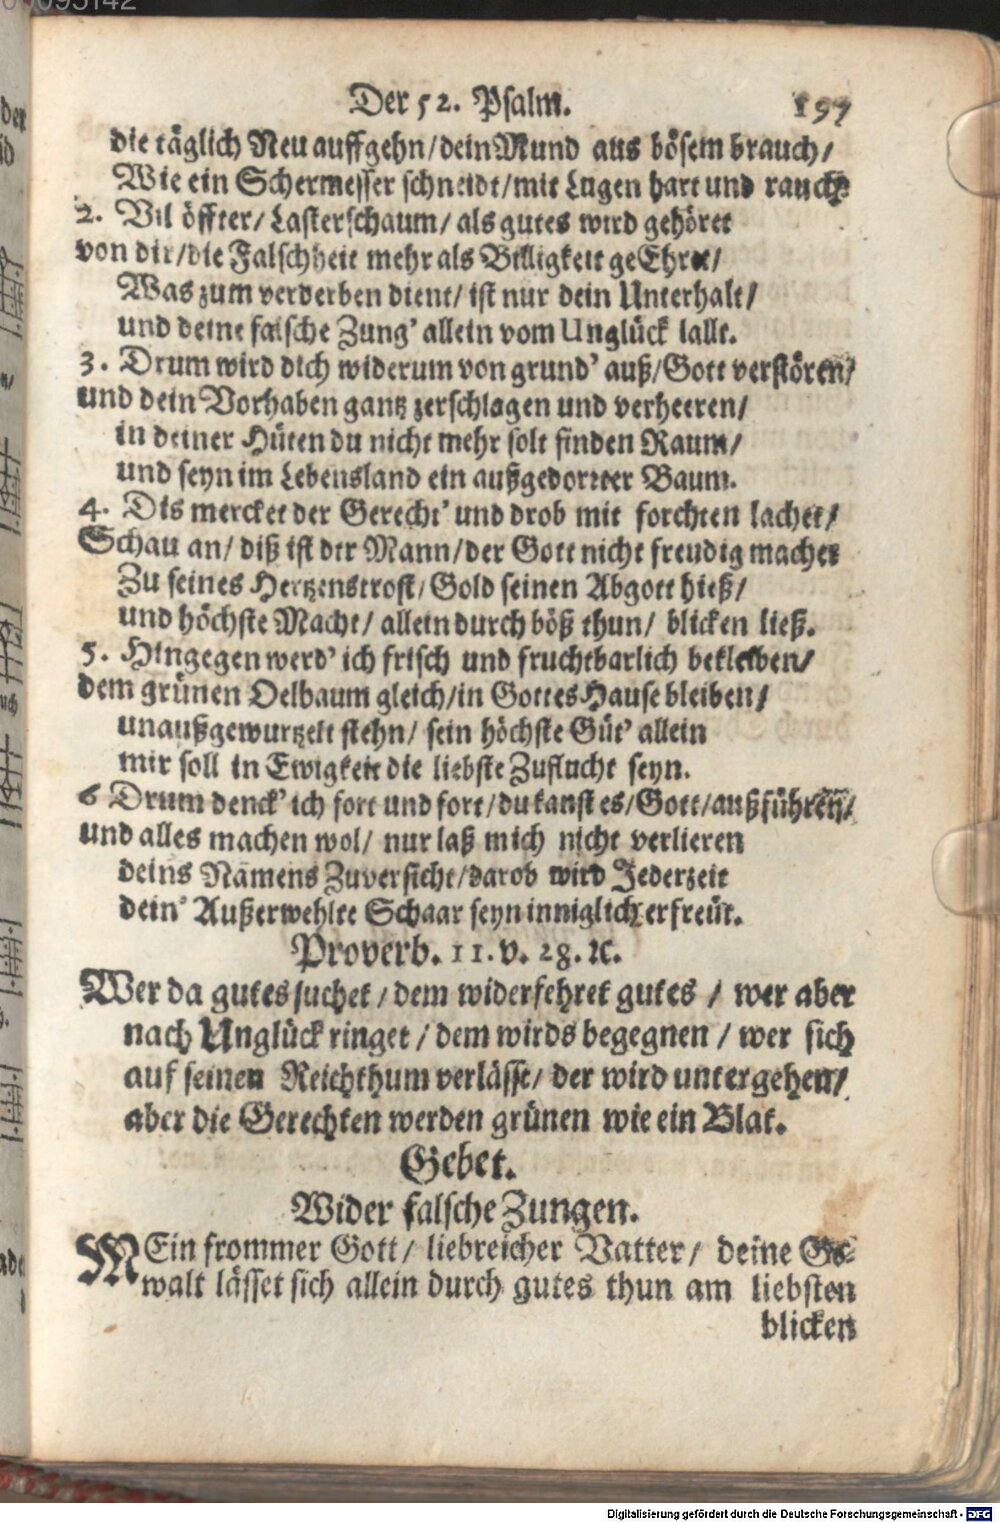 Der 52. Psalm. 197
die täglich Neu auffgehn/dein Mund aus bösem brauch/
Wie ein Schermesser schneidt/mit Lugen hart und rauch.
2. Vil öffter/ Lasterschaum/ als gutes wird gehöret
von dir/die Falschheit mehr als Billigkeit geEhret/
Was zum verderben dient/ ist nur dein Unterhalt/
und deine falsche Zung' allein vom Unglück lallt.
3. Drum wird dich widerum von grund' auß/Gott verstören/
und dein Vorhaben gantz zerschlagen und verheeren/
in deiner Hüten du nicht mehr solt finden Raum/
und seyn im Lebensland ein außgedorrter Baum.
4. Dis mercket der Gerecht' und drob mit forchten lachet/
Schau an/ diß ist der Mann/der Gott nicht freudig machet
Zu seines Hertzenstrost/Gold seinen Abgott hieß/
und höchste Macht/ allein durch böß thun/ blicken ließ.
5. Hingegen werd' ich frisch und fruchtbarlich bekleiben/
dem grünen Oelbaum gleich/in Gottes Hause bleiben/
unaußgewurtzelt stehn/ sein höchste Güt' allein
mir soll in Ewigkeit die liebste Zuflucht seyn.
6 Drum denck' ich fort und fort/du kanst es/Gott/außführen/
und alles machen wol/ nur laß mich nicht verlieren
deins Namens Zuversicht/darob wird Jederzeit
dein' Außerwehlte Schaar seyn inniglich erfreüt.
Proverb. 11. v. 28. ꝛc.
Wer da gutes suchet/ dem widerfehret gutes / wer aber
nach Unglück ringet / dem wirds begegnen / wer sich
auf seinen Reichthum verlässt/ der wird untergehen/
aber die Gerechten werden grünen wie ein Blat.
Gebet.
Wider falsche Zungen.
MEin frommer Gott/ liebreicher Vatter/ deine Ge-
walt lässet sich allein durch gutes thun am liebsten
blicken
Digitalisierung gefördert durch die Deutsche Forschungsgemeinschaft - DFG